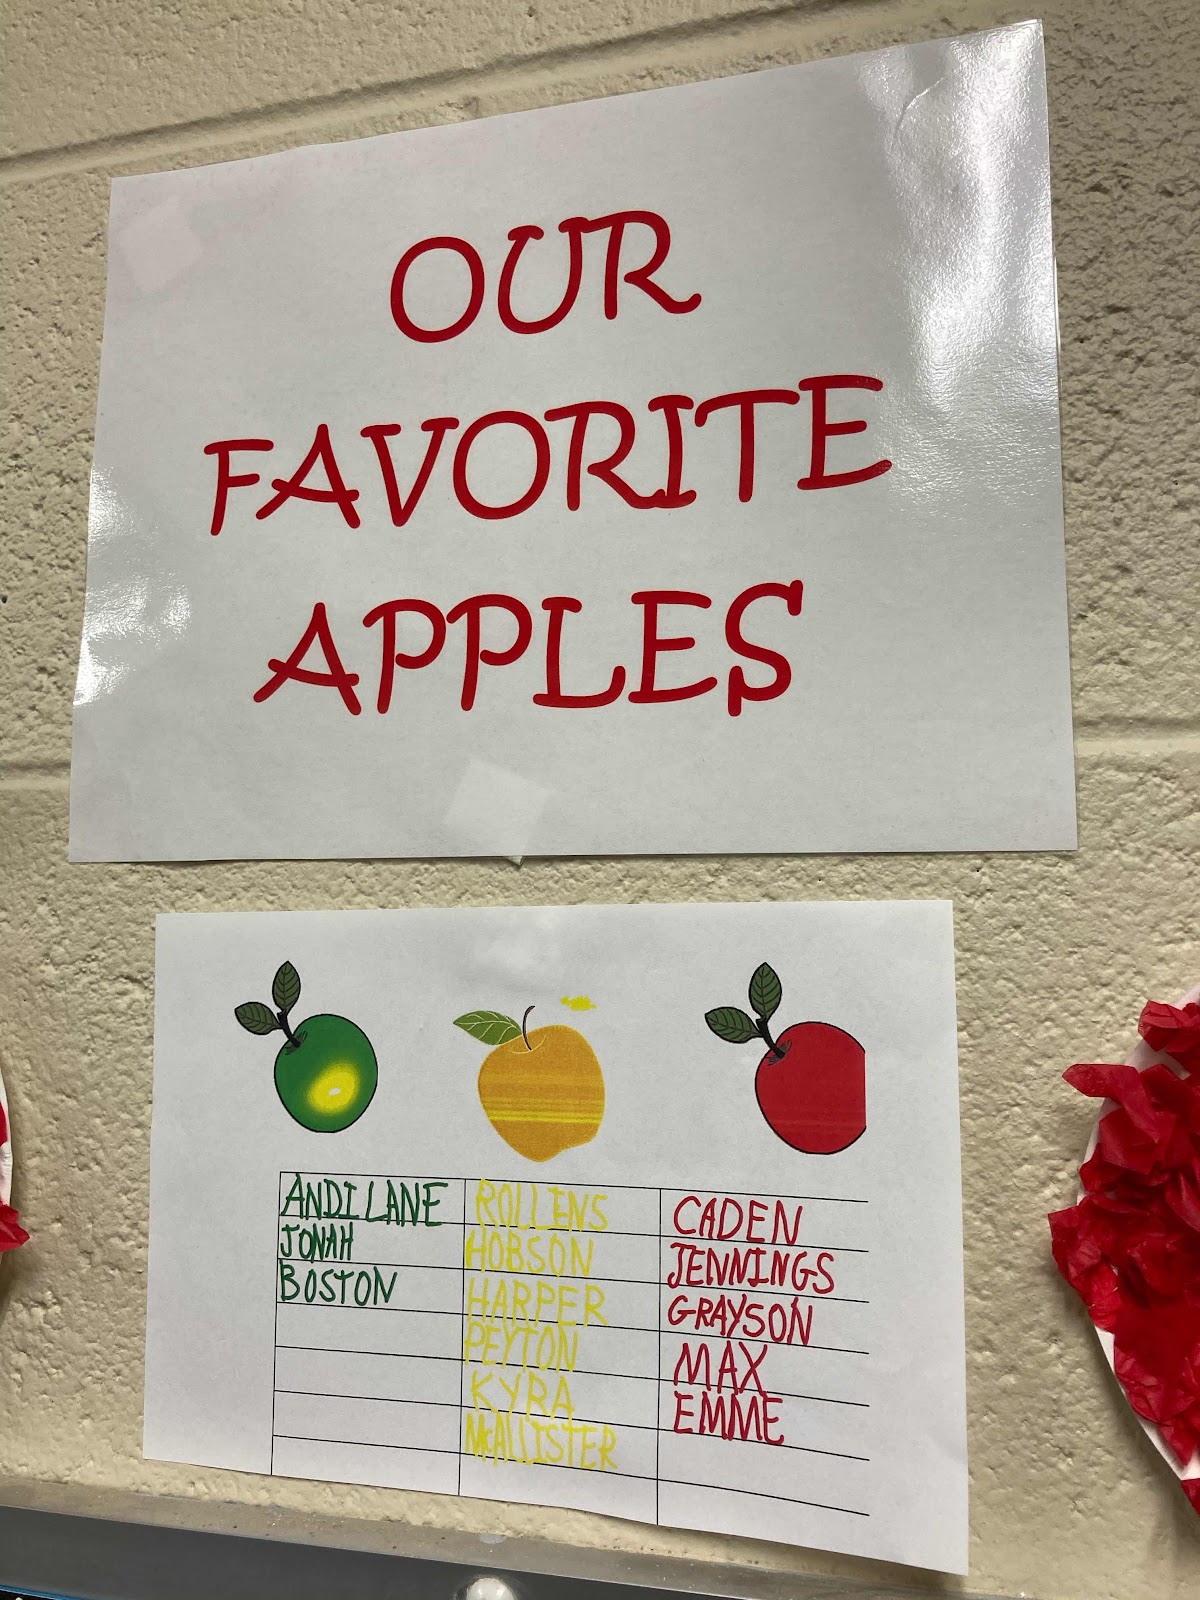 OUR
FAVORITE
APPLES
ANDI LANE ROLLINS CADEN
JONAH HOBSON JENNINGS
BOSTON HARPER GRAYSON
PEYTON MAX
KYRA EMME
McALLISTER